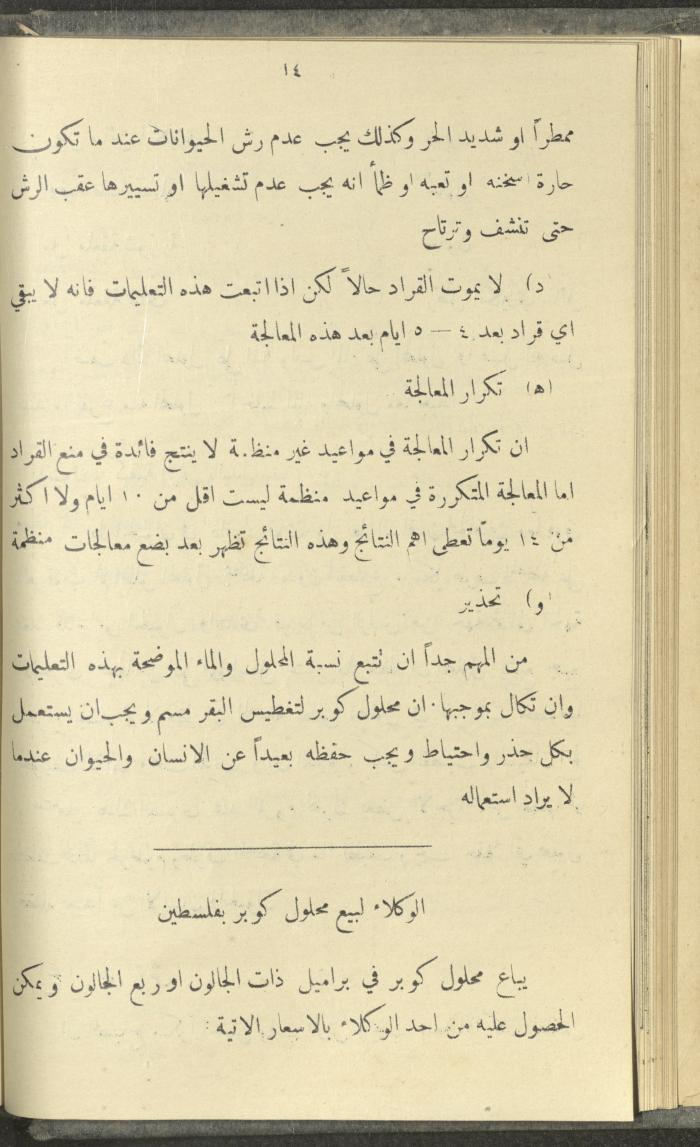 ١٤
ممطراً او شديد الحر وكذلك يجب عدم رش الحيوانات عند ما تكون
حارة سخنه او تعبه او ظمأ انه يجب عدم تشغيلها او تسييرها عقب الرش
حتى تنشف وترتاح
د) لا يموت القراد حالاً لكن اذا اتبعت هذه التعليمات فانه لا يبقي
اي قراد بعد ٤ — ٥ ايام بعد هذه المعالجة
(ه) تكرار المعالجة
ان تكرار المعالجة في مواعيد غير منظمة لا ينتج فائدة في منع القراد
اما المعالجة المتكررة في مواعيد منظمة ليست اقل من ١٠ ايام ولا اكثر
من ١٤ يوماً تعطى اهم النتائج وهذه النتائج تظهر بعد بضع معالجات منظمة
(و) تحذير
من المهم جداً ان تتبع نسبة المحلول والماء الموضحة بهذه التعليمات
وان تكال بموجبها. ان محلول كوبر لتغطيس البقر مسم ويجب ان يستعمل
بكل حذر واحتياط ويجب حفظه بعيداً عن الانسان والحيوان عندما
لا يراد استعماله
الوكلاء لبيع محلول كوبر بفلسطين
يباع محلول كوبر في براميل ذات الجالون او ربع الجالون ويمكن
الحصول عليه من احد الوكلاء بالاسعار الاتية :